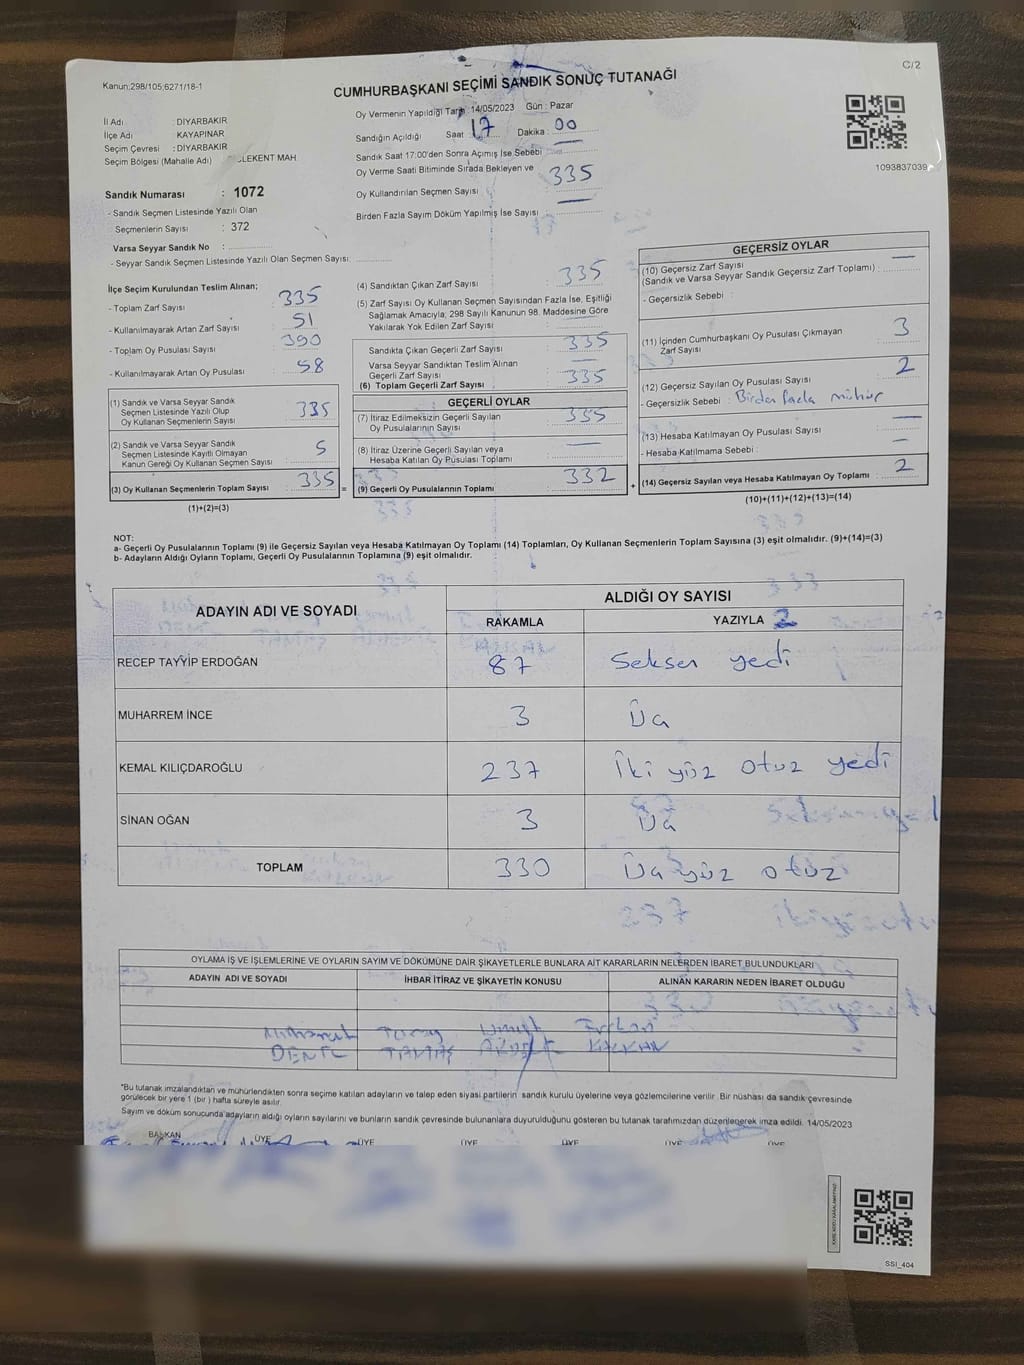 C/2
Kanun:298/105;6271/18-1
CUMHURBAŞKANI SEÇİMİ SANDIK SONUÇ TUTANAĞI
1093837039
İl Adı : DİYARBAKIR
İlçe Adı : KAYAPINAR
Seçim Çevresi : DİYARBAKIR
Seçim Bölgesi (Mahalle Adı) LEKENT MAH
Sandık Numarası : 1072
- Sandık Seçmen Listesinde Yazılı Olan
Seçmenlerin Sayısı : 372
Varsa Seyyar Sandık No :
- Seyyar Sandık Seçmen Listesinde Yazılı Olan Seçmen Sayısı:
Oy Vermenin Yapıldığı Tarih 14/05/2023 Gün : Pazar
Sandığın Açıldığı Saat 17 Dakika : 00
Sandık Saat 17:00'den Sonra Açılmış İse Sebebi
Oy Verme Saati Bitiminde Sırada Bekleyen ve
Oy Kullandırılan Seçmen Sayısı : 335
Birden Fazla Sayım Döküm Yapılmış İse Sayısı : —
İlçe Seçim Kurulundan Teslim Alınan;
- Toplam Zarf Sayısı : 335
- Kullanılmayarak Artan Zarf Sayısı : 51
- Toplam Oy Pusulası Sayısı : 390
- Kullanılmayarak Artan Oy Pusulası : 58
(1) Sandık ve Varsa Seyyar Sandık
Seçmen Listesinde Yazılı Olup
Oy Kullanan Seçmenlerin Sayısı : 335
(2) Sandık ve Varsa Seyyar Sandık
Seçmen Listesinde Kayıtlı Olmayan
Kanun Gereği Oy Kullanan Seçmen Sayısı : 5
(3) Oy Kullanan Seçmenlerin Toplam Sayısı : 335
(1)+(2)=(3)
(4) Sandıktan Çıkan Zarf Sayısı : 335
(5) Zarf Sayısı Oy Kullanan Seçmen Sayısından Fazla İse, Eşitliği
Sağlamak Amacıyla, 298 Sayılı Kanunun 98. Maddesine Göre
Yakılarak Yok Edilen Zarf Sayısı :
Sandıkta Çıkan Geçerli Zarf Sayısı : 335
Varsa Seyyar Sandıktan Teslim Alınan
Geçerli Zarf Sayısı : —
(6) Toplam Geçerli Zarf Sayısı : 335
GEÇERLİ OYLAR
(7) İtiraz Edilmeksizin Geçerli Sayılan
Oy Pusulalarının Sayısı : 335
(8) İtiraz Üzerine Geçerli Sayılan veya
Hesaba Katılan Oy Pusulası Toplamı : —
= (9) Geçerli Oy Pusulalarının Toplamı : 332 +
GEÇERSİZ OYLAR
(10) Geçersiz Zarf Sayısı
(Sandık ve Varsa Seyyar Sandık Geçersiz Zarf Toplamı) : —
- Geçersizlik Sebebi :
(11) İçinden Cumhurbaşkanı Oy Pusulası Çıkmayan
Zarf Sayısı 3
(12) Geçersiz Sayılan Oy Pusulası Sayısı 2
- Geçersizlik Sebebi : Birden fazla mühür
(13) Hesaba Katılmayan Oy Pusulası Sayısı —
- Hesaba Katılmama Sebebi : —
(14) Geçersiz Sayılan veya Hesaba Katılmayan Oy Toplamı : 2
(10)+(11)+(12)+(13)=(14)
NOT:
a- Geçerli Oy Pusulalarının Toplamı (9) ile Geçersiz Sayılan veya Hesaba Katılmayan Oy Toplamı (14) Toplamları, Oy Kullanan Seçmenlerin Toplam Sayısına (3) eşit olmalıdır. (9)+(14)=(3)
b- Adayların Aldığı Oyların Toplamı, Geçerli Oy Pusulalarının Toplamına (9) eşit olmalıdır.
ADAYIN ADI VE SOYADI ALDIĞI OY SAYISI
RAKAMLA YAZIYLA 2
RECEP TAYYİP ERDOĞAN 87 Seksen yedi
MUHARREM İNCE 3 Üç
KEMAL KILIÇDAROĞLU 237 İki yüz otuz yedi
SİNAN OĞAN 3 Üç
TOPLAM 330 Üç yüz otuz
OYLAMA İŞ VE İŞLEMLERİNE VE OYLARIN SAYIM VE DÖKÜMÜNE DAİR ŞİKAYETLERLE BUNLARA AİT KARARLARIN NELERDEN İBARET BULUNDUKLARI
ADAYIN ADI VE SOYADI İHBAR İTİRAZ VE ŞİKAYETİN KONUSU ALINAN KARARIN NEDEN İBARET OLDUĞU
KALKAN
*Bu tutanak imzalandıktan ve mühürlendikten sonra seçime katılan adayların ve talep eden siyasi partilerin sandık kurulu üyelerine veya gözlemcilerine verilir. Bir nüshası da sandık çevresinde
görülecek bir yere 1 (bir) hafta süreyle asılır.
Sayım ve döküm sonucunda adayların aldığı oyların sayılarını ve bunların sandık çevresinde bulunanlara duyurulduğunu gösteren bu tutanak tarafımızdan düzenlenerek imza edildi. 14/05/2023
BAŞKAN ÜYE ÜYE ÜYE ÜYE ÜYE ÜYE
SSI_404